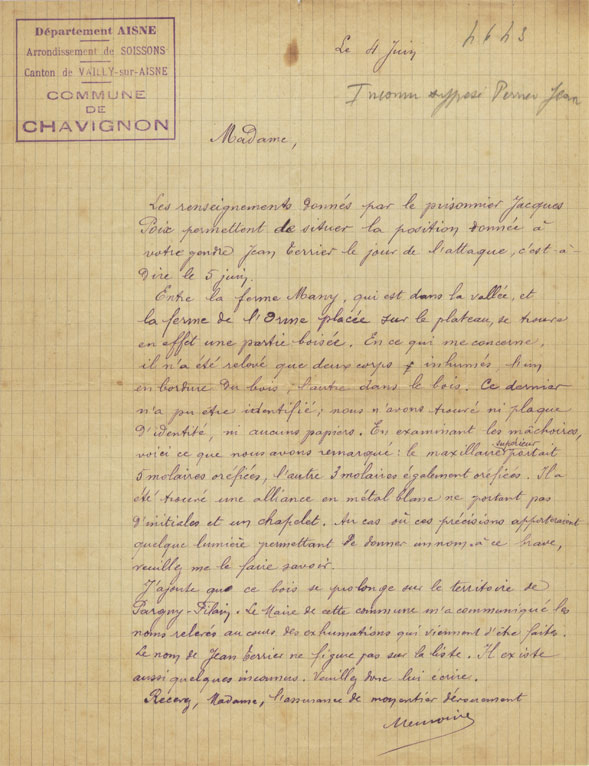 Département AISNE
Arrondissement de SOISSONS
Canton de VAILLY-sur-AISNE
COMMUNE
DE
CHAVIGNON
Le 4 Juin
4643
Inconnu supposé Jean
Madame,
Les renseignements donnés par le prisonnier Jacques
Poix permettent de situer la position donnée à
votre gendre Jean Terrier le jour de l'attaque, c'est-à-
dire le 5 juin.
Entre la ferme Many, qui est dans la vallée, et
la ferme de l'Orme placée sur le plateau, se trouve
en effet une partie boisée. En ce qui me concerne,
il n'a été relevé que deux corps inhumés, l'un
en bordure du bois, l'autre dans le bois. Ce dernier
n'a pu être identifié; nous n'avons trouvé ni plaque
d'identité, ni aucuns papiers. En examinant les mâchoires,
voici ce que nous avons remarqué: le maxillaire supérieur portait
5 molaires oréfiées, l'autre 3 molaires également oréfiées. Il a
été trouvé une alliance en métal blanc ne portant pas
d'initiales et un chapelet. Au cas où ces précisions apporteraient
quelque lumière permettant de donner un nom à ce brave,
veuillez me le faire savoir.
J'ajoute que ce bois se prolonge sur le territoire de
Pargny-Filain. Le Maire de cette commune m'a communiqué les
noms relevés au cours des exhumations qui viennent d'être faites.
Le nom de Jean Terrier ne figure pas sur la liste. Il existe
aussi quelques inconnus. Veuillez donc lui écrire.
Recevez, Madame, l'assurance de mon entier dévouement